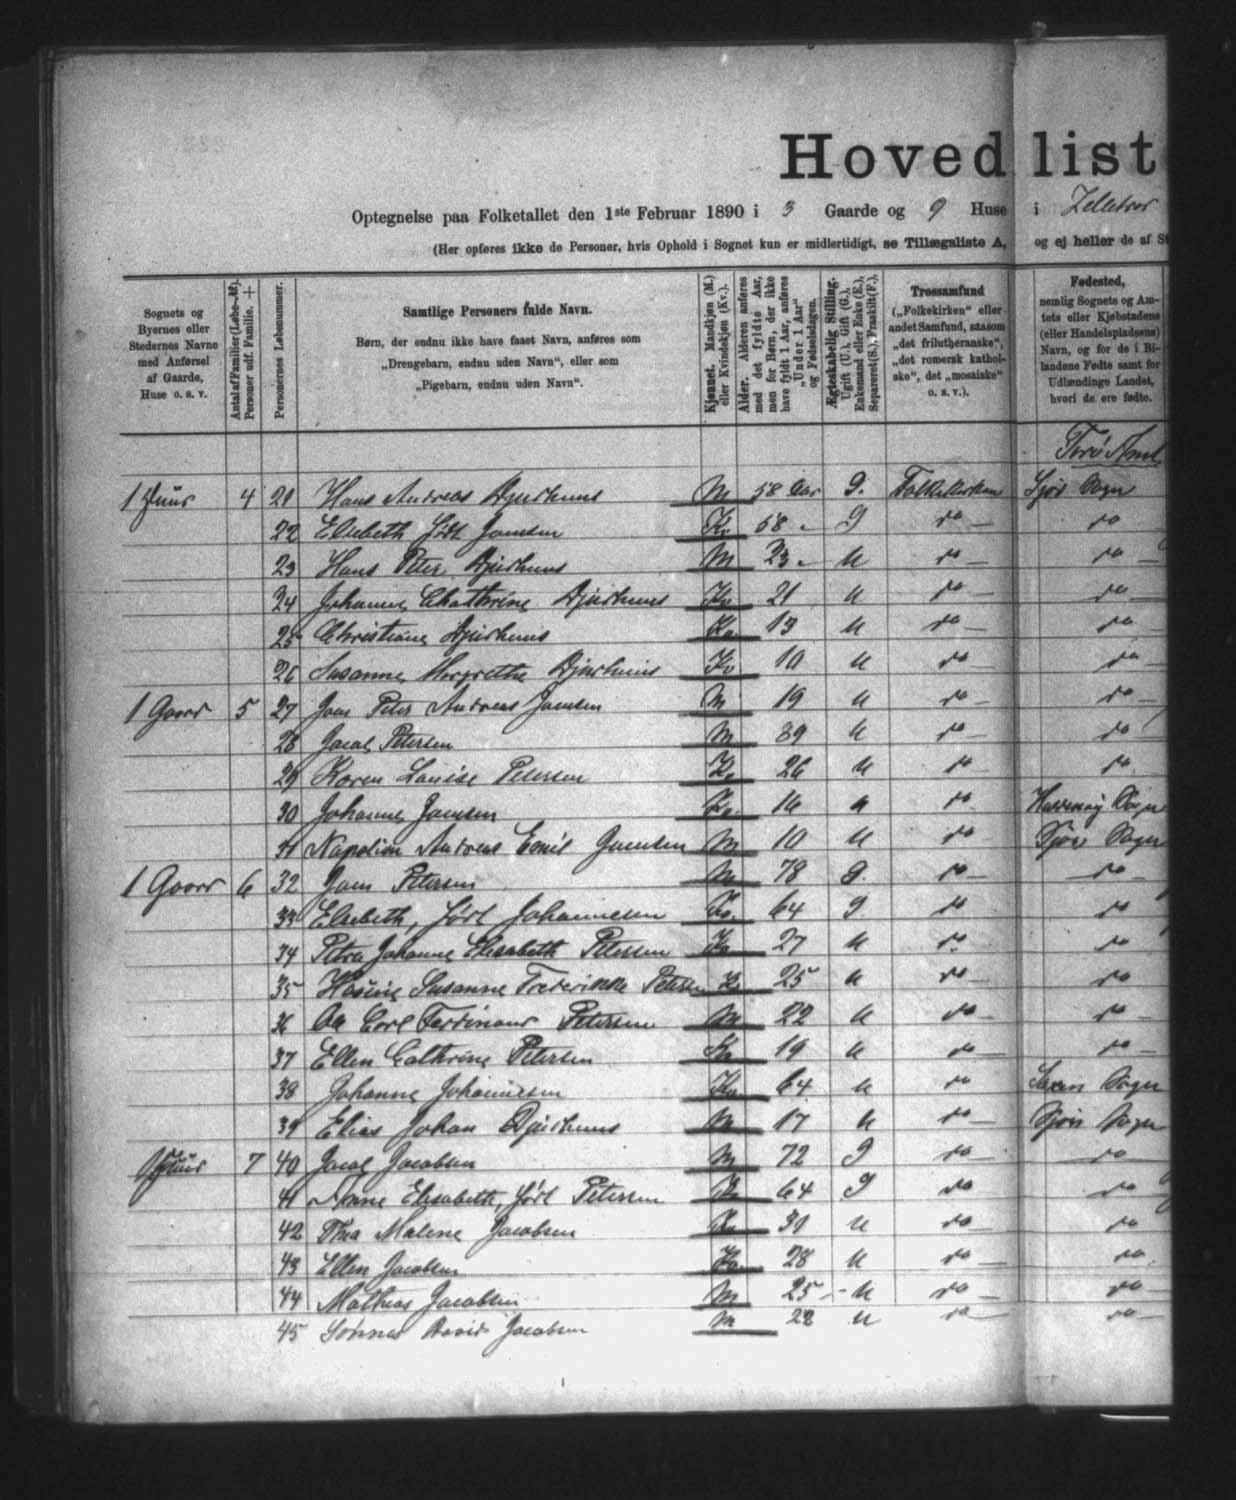 Hovedlist
Optegnelse paa Folketallet den 1ste Februar 1890 i 3 Gaarde og 9 Huse i
(Her opføres ikke de Personer, hvis Ophold i Sognet kun er midlertidigt, se Tillægsliste A, og ej heller de af
Sognets og Byernes eller Stedernes Navne med Anførsel af Gaarde, Huse o. s. v.
Antal af Familier (Løbe-№). Personer udf. Familie. +
Personernes Løbenummer.
Samtlige Personers fulde Navn.
Børn, der endnu ikke have faaet Navn, anføres som
„Drengebarn, endnu uden Navn“, eller som
„Pigebarn, endnu uden Navn“.
Kjønnet. Mandkjøn (M.) eller Kvindekjøn (Kv.).
Alder. Alderen anføres med det fyldte Aar, men for Børn, der ikke have fyldt 1 Aar, anføres "Under 1 Aar" og Fødselsdagen.
Ægteskabelig Stilling. Ugift (U.), Gift (G.), Enkemand eller Enke (E.), Separeret (S.), Fraskilt (F.).
Trossamfund („Folkekirken“ eller andet Samfund, saasom „det frilutheranske“, „det romersk katholske“, det „mosaiske“ o. s. v.).
Fødested, nemlig Sognets og Amtets eller Kjøbstadens (eller Handelspladsens) Navn, og for de i Bilandene Fødte samt for Udlændinge Landet, hvori de ere fødte.
Færø Amt
1 Huus 4 21 Hans Andreas Djurhuus M 58 Aar G. Folkekirken Sjov Sogn
22 Elsebeth født Joensen Kv 58 " G do do
23 Hans Peter Djurhuus M 23 " U do do
24 Johanne Chathrine Djurhuus Kv 21 U do do
25 Christiane Djurhuus Kv 13 U do do
26 Susanne Margrethe Djurhuus Kv 10 U do do
1 Gaard 5 27 Joen Peter Andreas Joensen M 19 U do do
28 Jacob Petersen M 39 U do do
29 Karen Louise Petersen Kv 26 U do do
30 Johanne Joensen Kv. 16 U do Sogn
31 Napolion Andreas Emil Joensen M 10 U do Sjov Sogn
1 Gaard 6 32 Joen Petersen M 78 G. do do
33 Elsebeth, født Johannesen Kv. 64 G do do
34 Petra Johanne Elisabeth Petersen Kv 27 U do do
35 Susanne Frederikke Petersen Kv 25 U do do
36 Ole Carl Ferdinand Petersen M 22 U do do
37 Ellen Cathrine Petersen Kv 19 U do do
38 Johanne Johannesen Kv 64 U do Sogn
39 Elias Johan Djurhuus M 17 U do Sjov Sogn
1 Huus 7 40 Jacob Jacobsen M 72 G do do
41 Anne Elisabeth, født Petersen Kv 64 G do do
42 Thea Malene Jacobsen Kv 31 U do do
43 Ellen Jacobsen Kv 28 U do do
44 Mathias Jacobsen M 25 U do do
45 David Jacobsen M 22 U do do